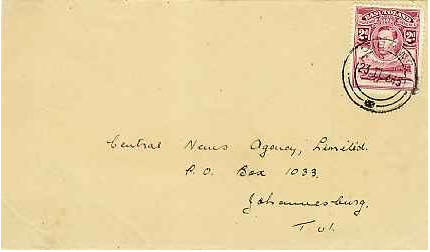 BASUTOLAND
2d 2d
Central News Agency, Limited.
P.O. Box 1033.
Johannesburg.
T.vl.